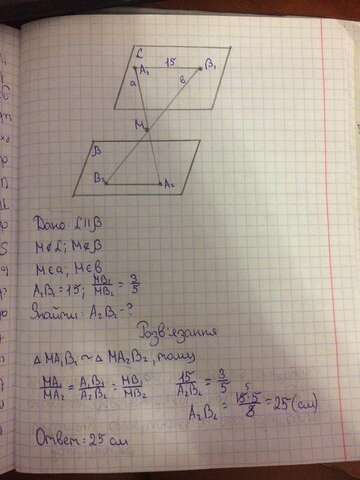 α
A₁ 15 B₁
a b
M
β
B₂ A₂
Дано α∥β
M∉α; M∉β
M∈a, M∈b
A₁B₁=15; MB₁/MB₂ = 3/5
Знайти: A₂B₂-?
Розв'язання
△MA₁B₁ ~ △MA₂B₂, тому
MA₁/MA₂ = A₁B₁/A₂B₂ = MB₁/MB₂ 15/A₂B₂ = 3/5
A₂B₂ = 15·5/3 = 25 (см)
Ответ: 25 см